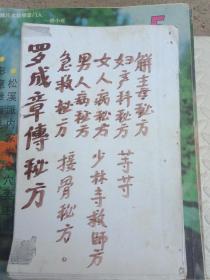 解毒秘方
妇产科秘方 等等
女人病秘方 少林寺救師方
男人病秘方
急救秘方 接骨秘方
罗成章傳秘方
松溪派